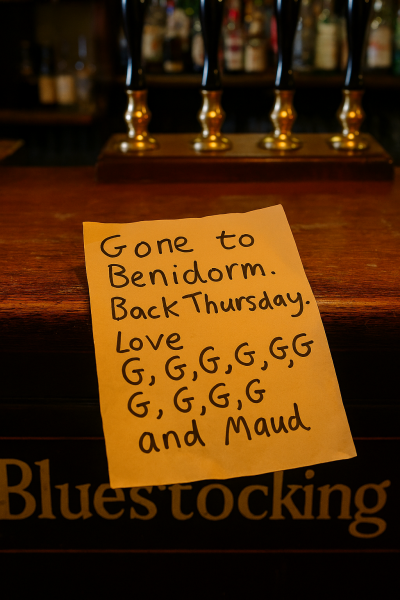 Gone to
Benidorm.
Back Thursday.
Love
G, G, G, G, G, G
G, G, G, G
and Maud
Bluestocking